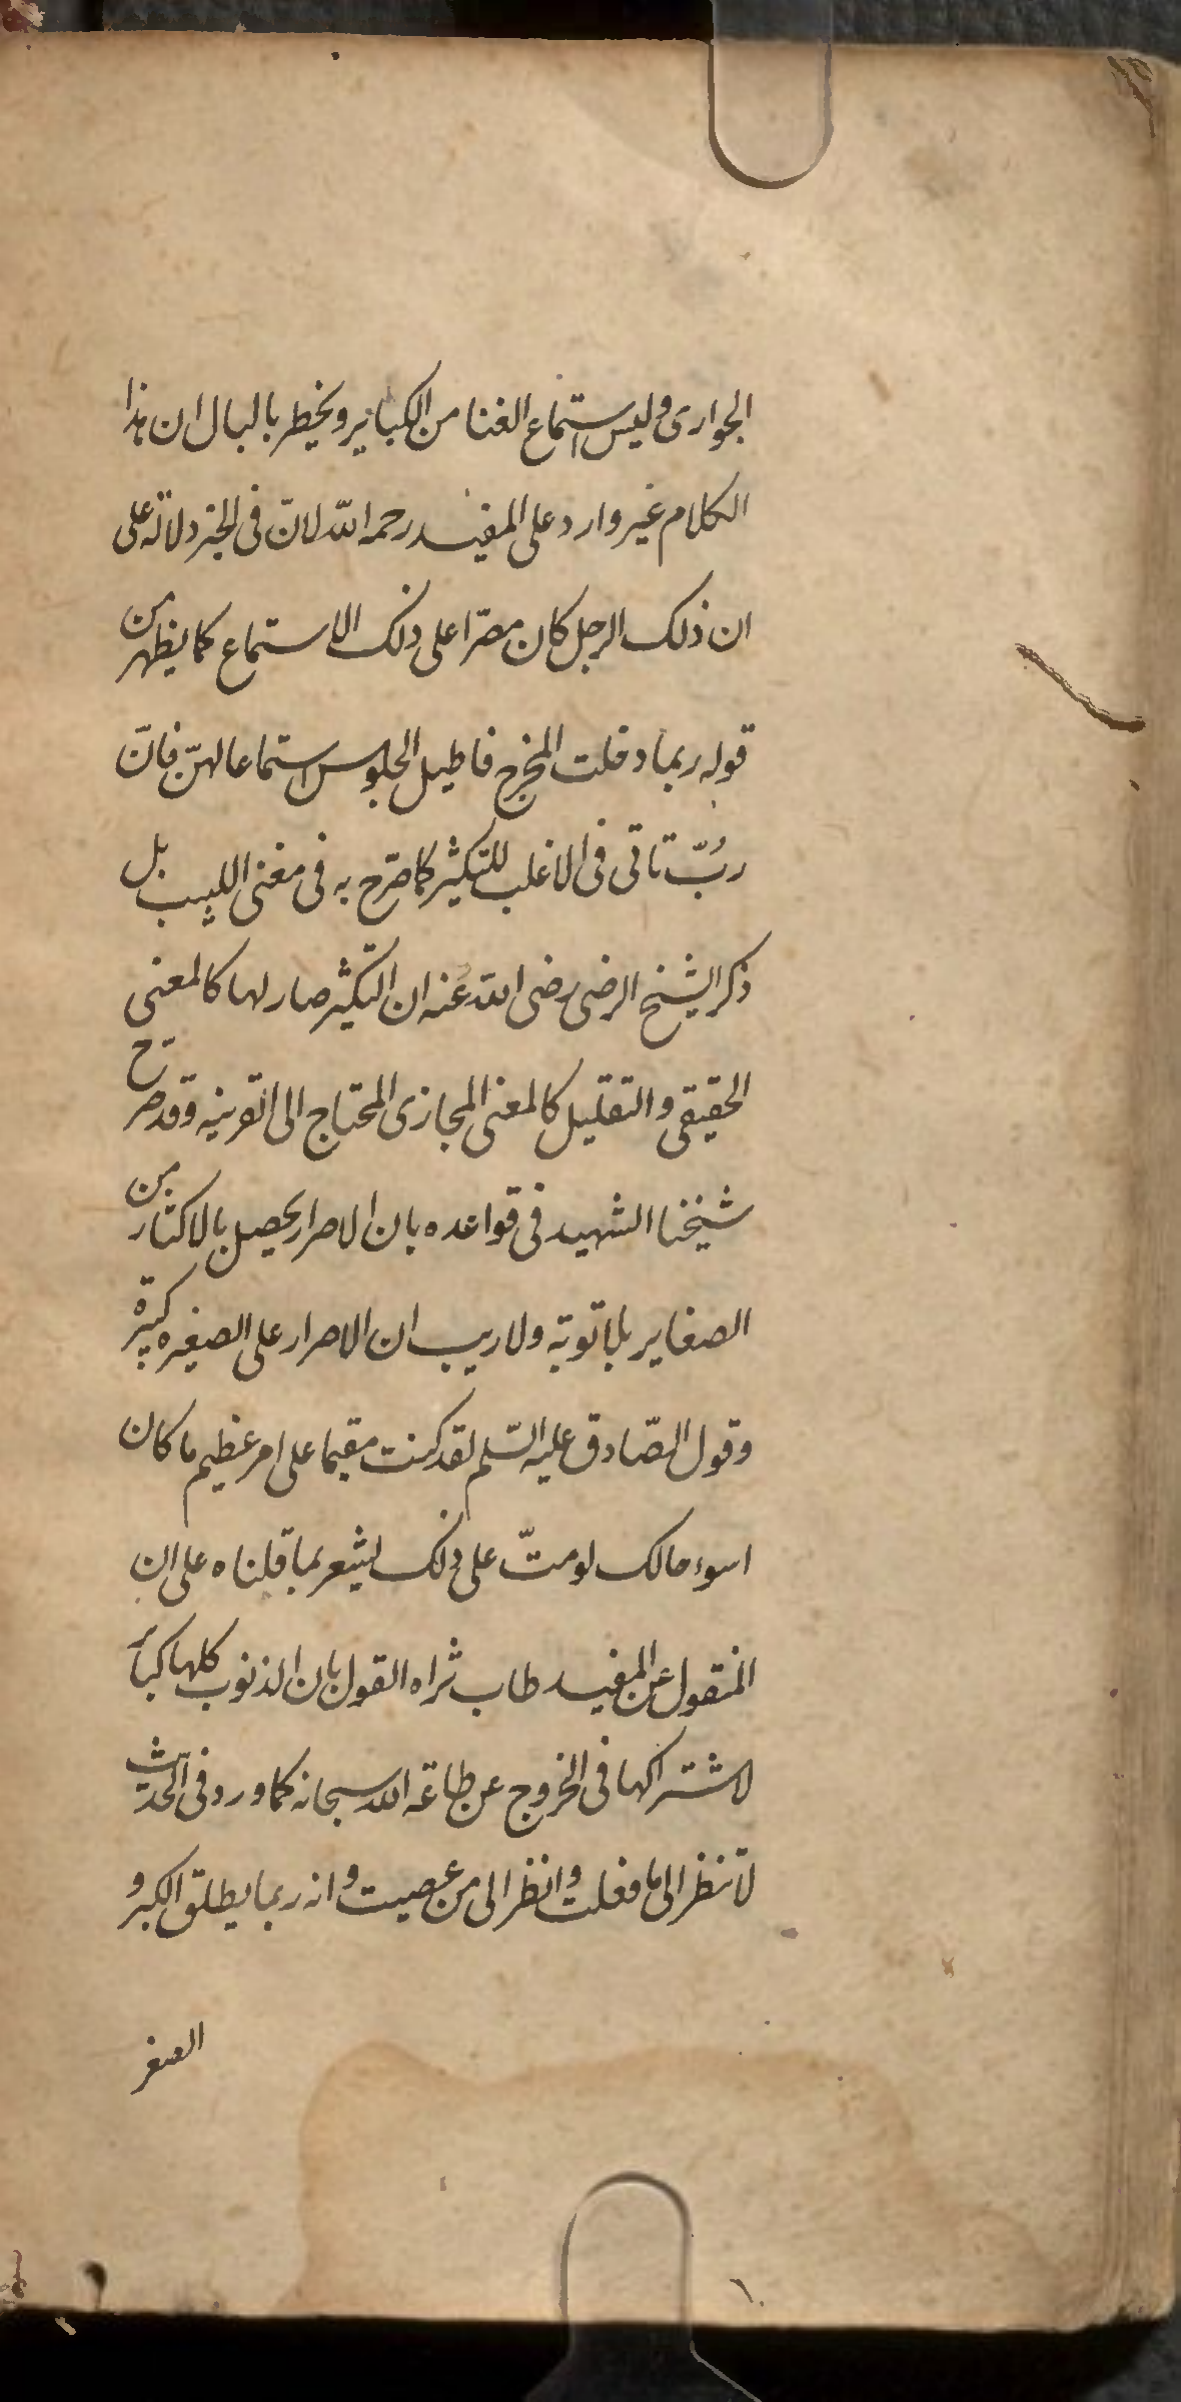 الجوارى وليس استماع الغنا من الكباير ويخطر بالبال ان هذا
الكلام غير وارد على المفيد رحمه الله لانّ فى الخبر دلالة على
ان ذلك الرجل كان مصرّا على ذلك الاستماع كما يظهر من
قوله ربما دخلت المخرج فاطيل الجلوس استماعا لهنّ فانّ
رُبّ تاتى فى الاغلب للتكثير كما صرّح به فى مغنى اللبيب بل
ذكر الشيخ الرضى رضى الله عنه ان التكثير صار لها كالمعنى
الحقيقى و التقليل كالمعنى المجازى المحتاج الى القرينه وقد صرّح
شيخنا الشهيد فى قواعده بان الاصرار يحصل بالاكثار من
الصغاير بلا توبة ولا ريب ان الاصرار على الصغيره كبيرة
وقول الصّادق عليه السّلم لقد كنت مقيما على امر عظيم ما كان
اسوء حالك لو متّ على ذلك يشعر بما قلناه على ان
المنقول عن المفيد طاب ثراه القول بان الذنوب كلها كبائر
لاشتراكها فى الخروج عن طاعة الله سبحانه كما ورد فى الحديث
لا تنظر الى ما فعلت وانظر الى من عصيت وانه ربما يطلق الكبر و
الصغر